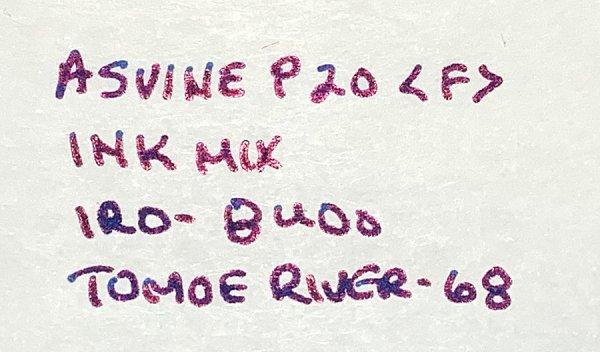 ASVINE P20 <F>
INK MIX
IRO-BUDO
TOMOE RIVER-68